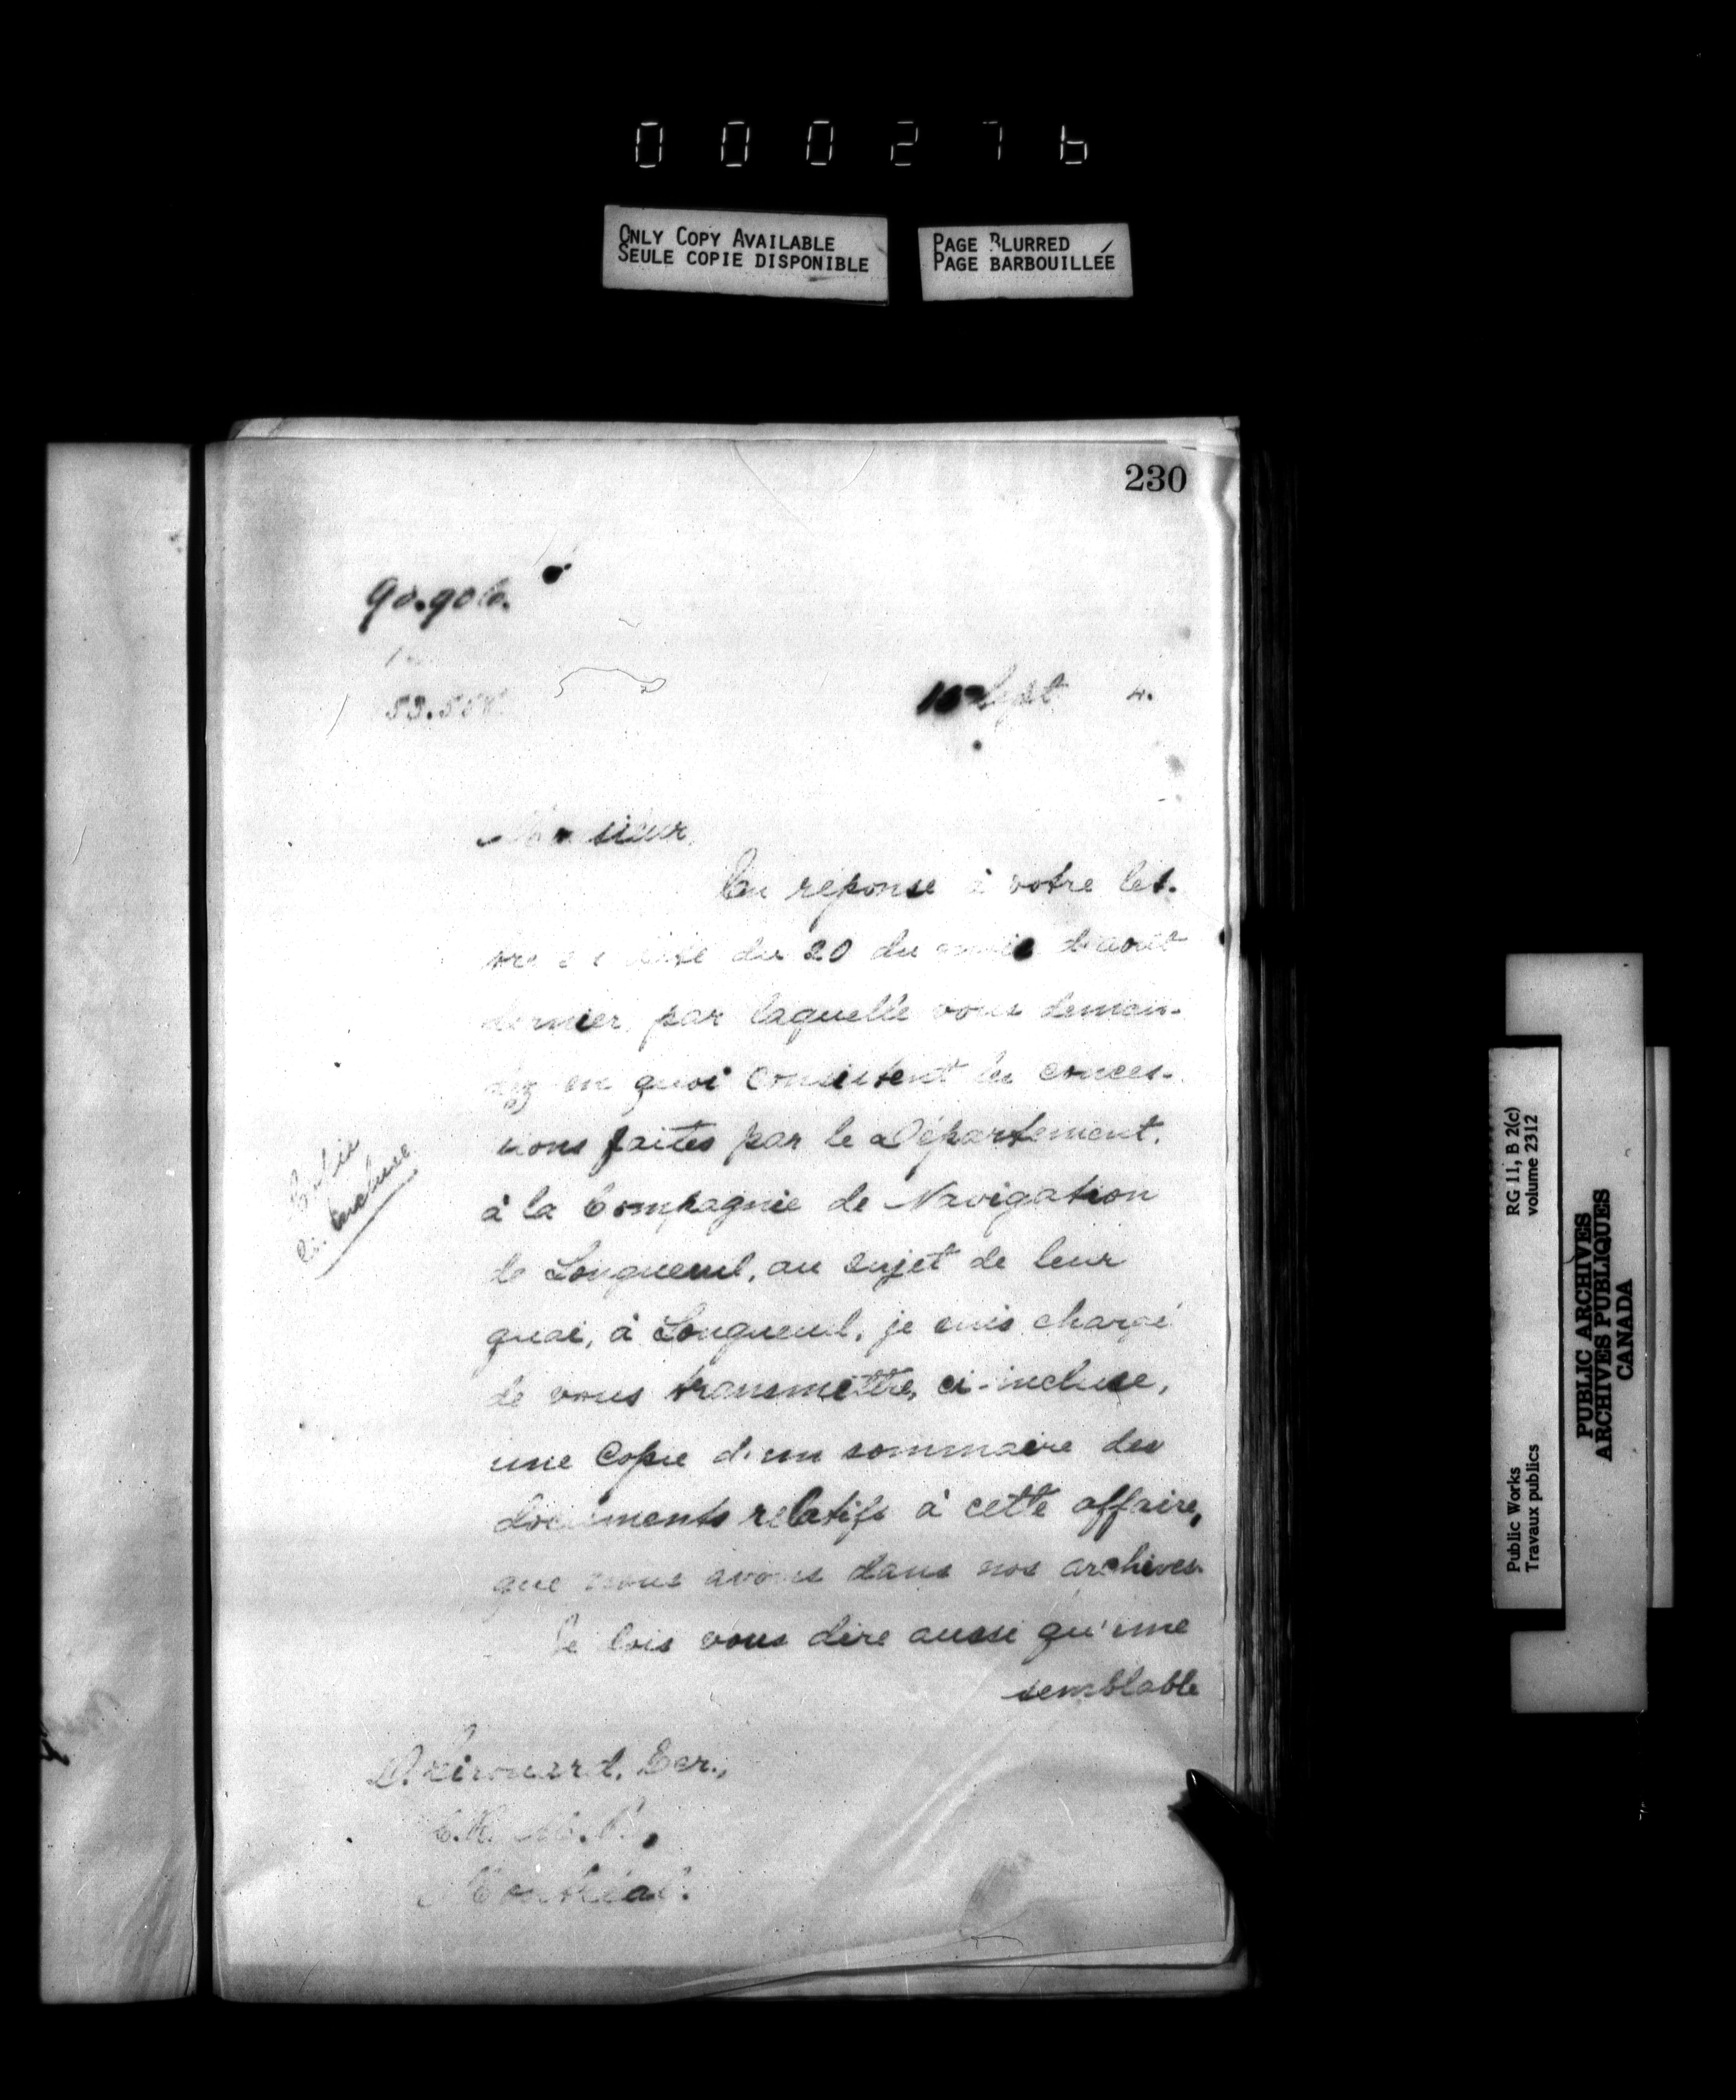 000276
ONLY COPY AVAILABLE
SEULE COPIE DISPONIBLE
PAGE BLURRED
PAGE BARBOUILLÉE
230
10 Sept 4.
Monsieur,
En réponse à votre let-
tre en date du 20 du mois d'août
dernier, par laquelle vous deman-
dez en quoi consistent les conces-
sions faites par le Département.
à la Compagnie de Navigation
de Longueuil, au sujet de leur
quai, à Longueuil, je suis chargé
de vous transmettre, ci-incluse,
une Copie d'un sommaire des
documents relatifs à cette affaire,
que nous avons dans nos archives.
Je dois vous dire aussi qu'une
semblable
D. Girouard, Ecr.,
C.R. M.P.,
Montréal.
RG 11, B 2(c)
volume 2312
Public Works
Travaux publics
PUBLIC ARCHIVES
ARCHIVES PUBLIQUES
CANADA